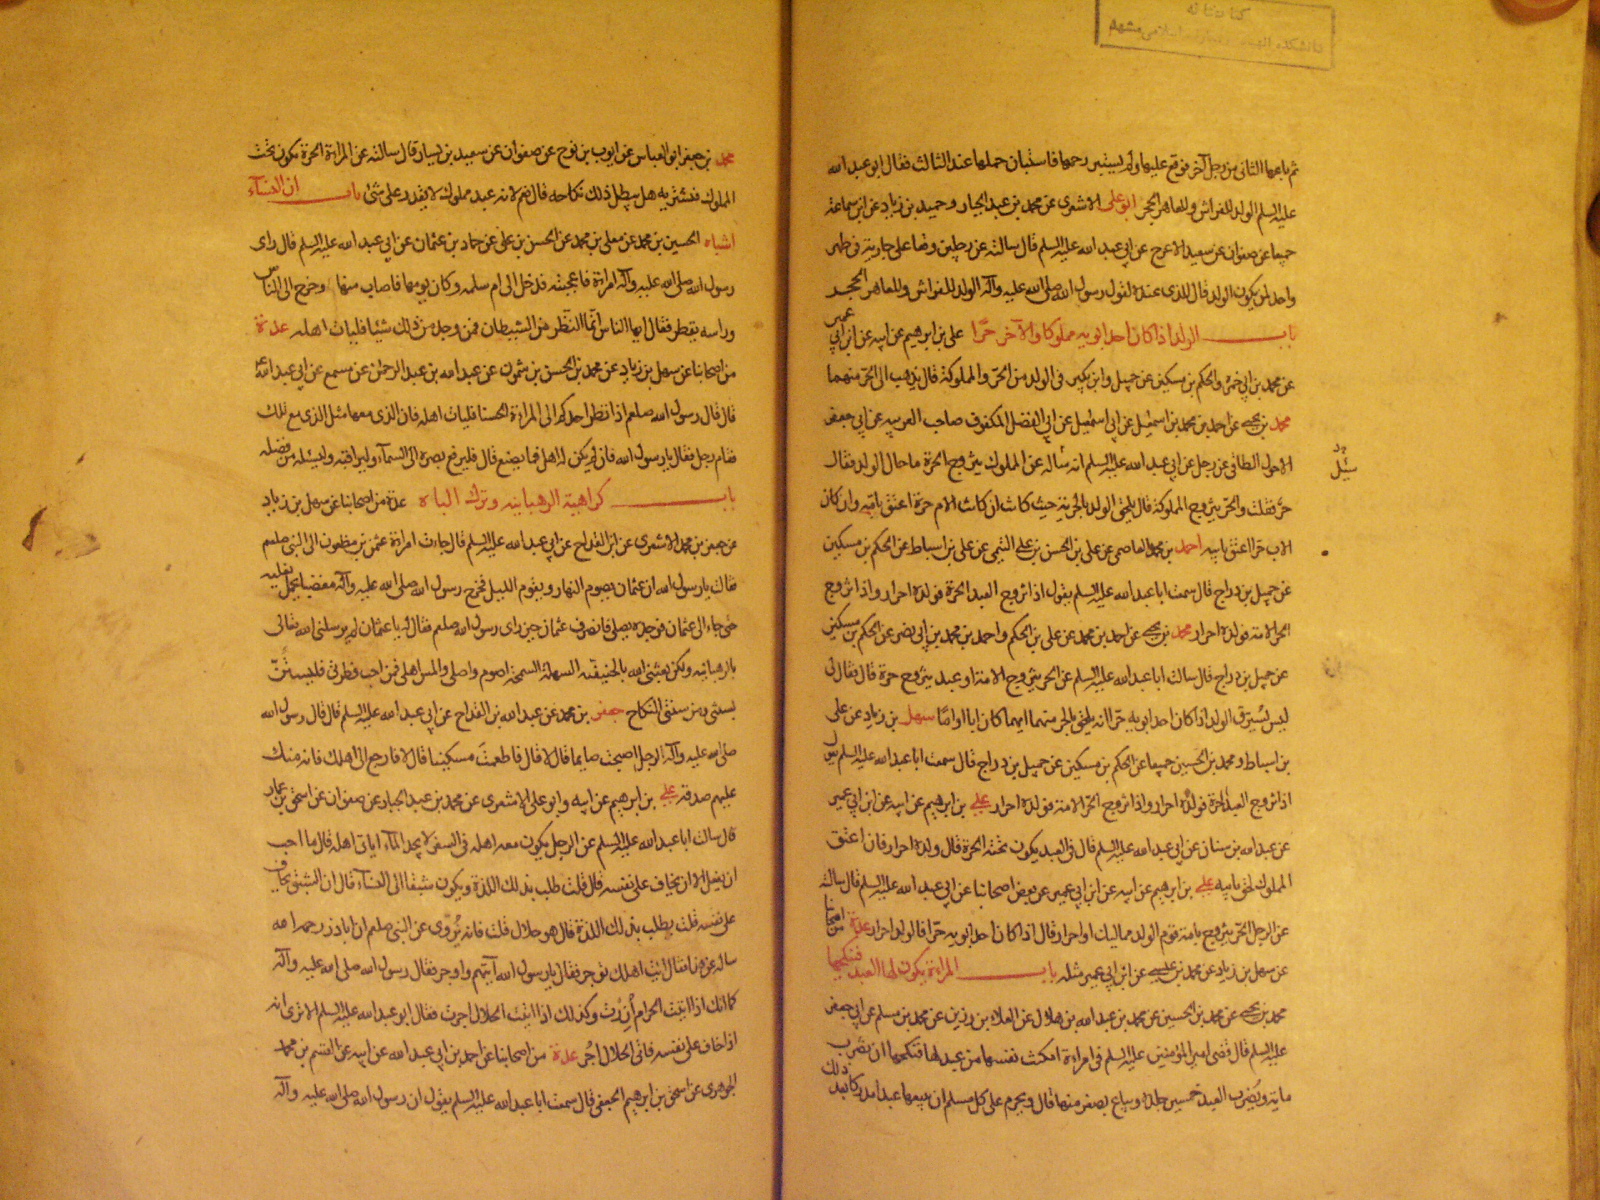 كتابخانه
دانشكده الهيات و معارف اسلامى مشهد
ثم باعها الثانى من رجل آخر فوقع عليها ولم يستبر رحمها فاستبان حملها عند الثالث فقال ابو عبد الله
عليه السلم الولد للفراش وللعاهر الحجر ابو على الاشعرى عن محمد بن عبد الجبار وحميد بن زياد عن ابن سماعة
جميعا عن صفوان عن سعيد الاعرج عن ابى عبد الله عليه السلم قال سالته عن رجلين وقعا على جارية فى طهر
واحد لمن يكون الولد قال للذى عنده لقول رسول الله صلى الله عليه وآله الولد للفراش وللعاهر الحجر
باب الولد اذا كان احد ابويه مملوكا والآخر حرّا على بن ابرهيم عن ابيه عن ابن ابى عمير
عن محمد بن ابى حمزة والحكم بن مسكين عن جميل وابن بكير فى الولد من الحرّ والمملوكة قال يذهب الى الحرّ منهما
محمد بن يحيى عن احمد بن محمد بن اسمعيل عن ابى اسمعيل عن ابى الفضل المكفوف صاحب العربيه عن ابى جعفر
الاحول الطائى عن رجل عن ابى عبد الله عليه السلم انه سأله عن المملوك يتزوج الحرّة ما حال الولد فقال
سئل
حرّ فقلت والحرّ يتزوج المملوكة قال يلحق الولد بالحرية حيث كانت ان كانت الام حرّة اعتق بامّه وان كان
الاب حرّا اعتق بابيه احمد بن محمد العاصمى عن على بن الحسن بن على التيمى عن على بن اسباط عن الحكم بن مسكين
عن جميل بن دراج قال سمعت ابا عبد الله عليه السلم يقول اذا تزوج العبد الحرّة فولده احرار واذا تزوج
الحرّ الامة فولده احرار محمد بن يحيى عن احمد بن محمد عن على بن الحكم واحمد بن محمد بن ابى نصر عن الحكم بن مسكين
عن جميل بن دراج قال سالت ابا عبد الله عليه السلم عن الحر يتزوج الامة او عبد يتزوج حرّة قال فقال لى
ليس يسترق الولد اذا كان احد ابويه حرّا انه يلحق بالحر منهما ايهما كان ابا او امّا سهل بن زياد عن على
بن اسباط ومحمد بن الحسين جميعا عن الحكم بن مسكين عن جميل بن دراج قال سمعت ابا عبد الله عليه السلم يقول
اذا تزوج العبد الحرّة فولده احرار واذا تزوج الحرّ الامة فولده احرار على بن ابرهيم عن ابيه عن ابن ابى عمير
عن عبد الله بن سنان عن ابى عبد الله عليه السلم قال فى العبد يكون تحته الحرّة قال ولده احرار فان اعتق
المملوك لحق بابيه على بن ابرهيم عن ابيه عن ابن ابى عمير عن بعض اصحابنا عن ابى عبد الله عليه السلم قال سالته
عن الرجل الحرّ يتزوج بامة قوم الولد مماليك او احرار قال اذا كان احد ابويه حرّا فالولد احرار عدّة من اصحابنا
عن سهل بن زياد عن محمد بن عيسى عن ابن ابى عمير مثله باب المراءة يكون لها العبد فينكحها
محمد بن يحيى عن محمد بن الحسين عن محمد بن عبد الله بن هلال عن العلاء بن رزين عن محمد بن مسلم عن ابى جعفر
عليه السلم قال قضى امير المؤمنين عليه السلم فى امراءة امكنت نفسها من عبد لها فنكحها ان تضرب
ماية ويضرب العبد خمسين جلدة ويباع بصغر منها قال ويحرم على كل مسلم ان يبيعها عبدا مدركا بعد ذلك
محمد بن جعفر ابو العباس عن ايوب بن نوح عن صفوان عن سعيد بن يسار قال سالته عن المراءة الحرّة يكون تحت
المملوك فتشتريه هل يبطل ذلك نكاحه قال نعم لانه عبد مملوك لا يقدر على شئ باب ان النسآء
اشباه الحسين بن محمد عن معلى بن محمد عن الحسن بن على عن حماد بن عثمان عن ابى عبد الله عليه السلم قال راى
رسول الله صلى الله عليه وآله امراءة فاعجبته فدخل الى ام سلمه وكان يومها فاصاب منها وخرج الى الناس
وراسه يقطر فقال ايها الناس انّما النظر من الشيطان فمن وجد من ذلك شيئا فليات اهله عدّة
من اصحابنا عن سهل بن زياد عن محمد بن الحسن بن شمون عن عبد الله بن عبد الرحمن عن مسمع عن ابى عبد الله
قال قال رسول الله صلعم اذا نظر احدكم الى المراءة الحسنا فليات اهله فان الذى معها مثل الذى مع تلك
فقام رجل فقال يا رسول الله فان لم يكن له اهل فما يصنع قال فليرفع بصره الى السمآء وليراقبه وليسئله من فضله
باب كراهية الرهبانيه وترك الباه عدّة من اصحابنا عن سهل بن زياد
عن جعفر بن محمد الاشعرى عن ابن القداح عن ابى عبد الله عليه السلم قال جاءت امراءة عثمن بن مظعون الى النبى صلعم
فقالت يا رسول الله ان عثمان يصوم النهار ويقوم الليل فخرج رسول الله صلى الله عليه وآله مغضبا يحمل نعليه
حتى جاء الى عثمان فوجده يصلى فانصرف عثمان حين راى رسول الله صلعم فقال له يا عثمان لم يرسلنى الله تعالى
بالرهبانيه ولكن بعثنى الله بالحنيفيّه السهلة السمحة اصوم واصلى والمس اهلى فمن احب فطرتى فليستنّ
بسنتى ومن سنتى النكاح جعفر بن محمد عن عبد الله بن القداح عن ابى عبد الله عليه السلم قال قال رسول الله
صلى الله عليه وآله لرجل اصبحت صايما قال لا قال فاطعمت مسكينا قال لا قال فارجع الى اهلك فانه منك
عليهم صدقه على بن ابرهيم عن ابيه وابو على الاشعرى عن محمد بن عبد الجبار عن صفوان عن اسحق بن عمار
قال سالت ابا عبد الله عليه السلم عن الرجل يكون معه اهله فى السفر لا يجد المآء اياتى اهله قال ما احب
ان يفعل الا ان يخاف على نفسه قال قلت طلب بذلك اللذة ويكون شبقا الى النسآء قال ان الشبق يخاف
على نفسه قلت يطلب بذلك اللذة قال هو حلال قلت فانه يُروى عن النبى صلعم ان اباذر رحمه الله
ساله عن هذا فقال ايت اهلك توجر فقال يا رسول الله آتيهم واوجر فقال رسول الله صلى الله عليه وآله
كما انك اذا اتيت الحرام اُزرت وكذلك اذا اتيت الحلال اجرت فقال ابو عبد الله عليه السلم الا ترى انه
اذا خاف على نفسه فاتى الحلال اُجر عدّة من اصحابنا عن احمد بن ابى عبد الله عن ابيه عن القسم بن محمد
الجوهرى عن اسحق بن ابرهيم الجعفى قال سمعت ابا عبد الله عليه السلم يقول ان رسول الله صلى الله عليه وآله